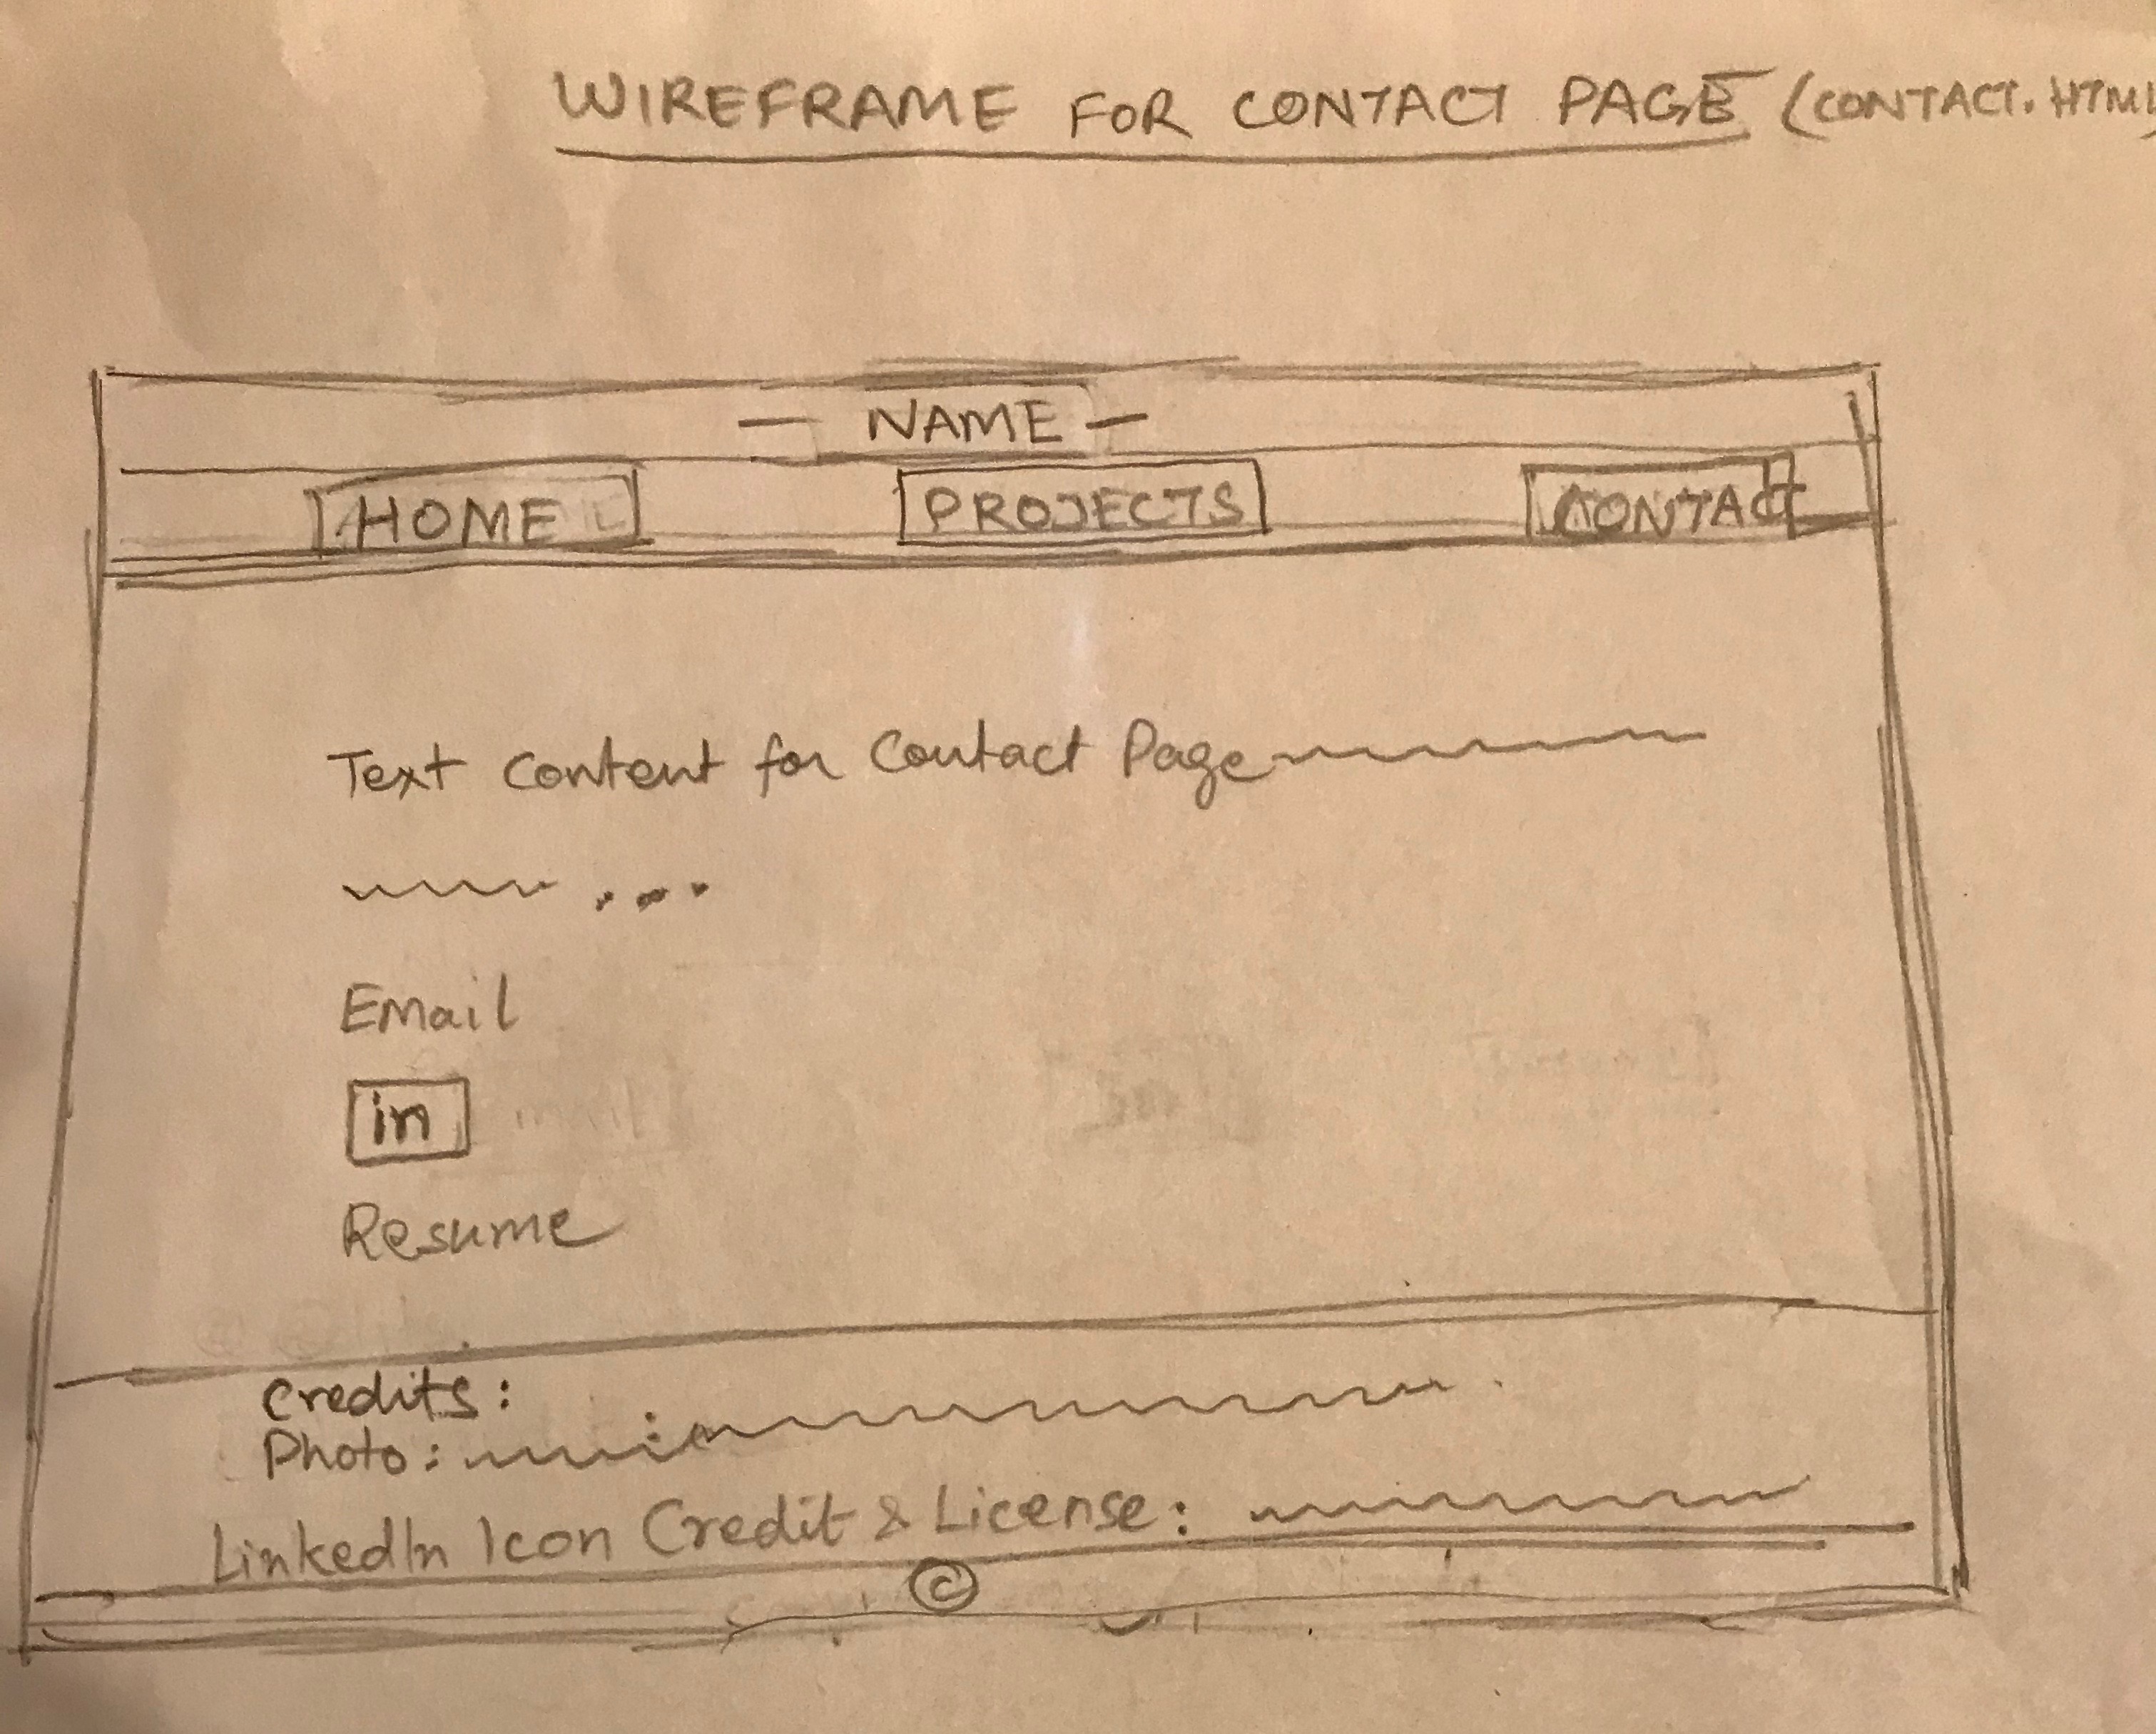 WIREFRAME FOR CONTACT PAGE (CONTACT.HTML)
— NAME —
HOME PROJECTS CONTACT
Text Content for Contact Page
...
Email
in
Resume
Credits:
Photo:
LinkedIn Icon Credit & License:
©